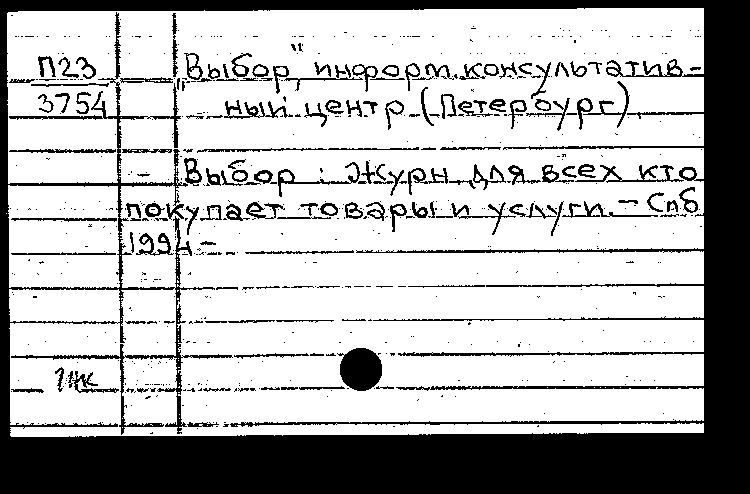 П23 "Выбор", информ.консультатив-
3754 ный центр (Петербург)
- Выбор : Журн. для всех кто
покупает товары и услуги. - Спб
1994 -